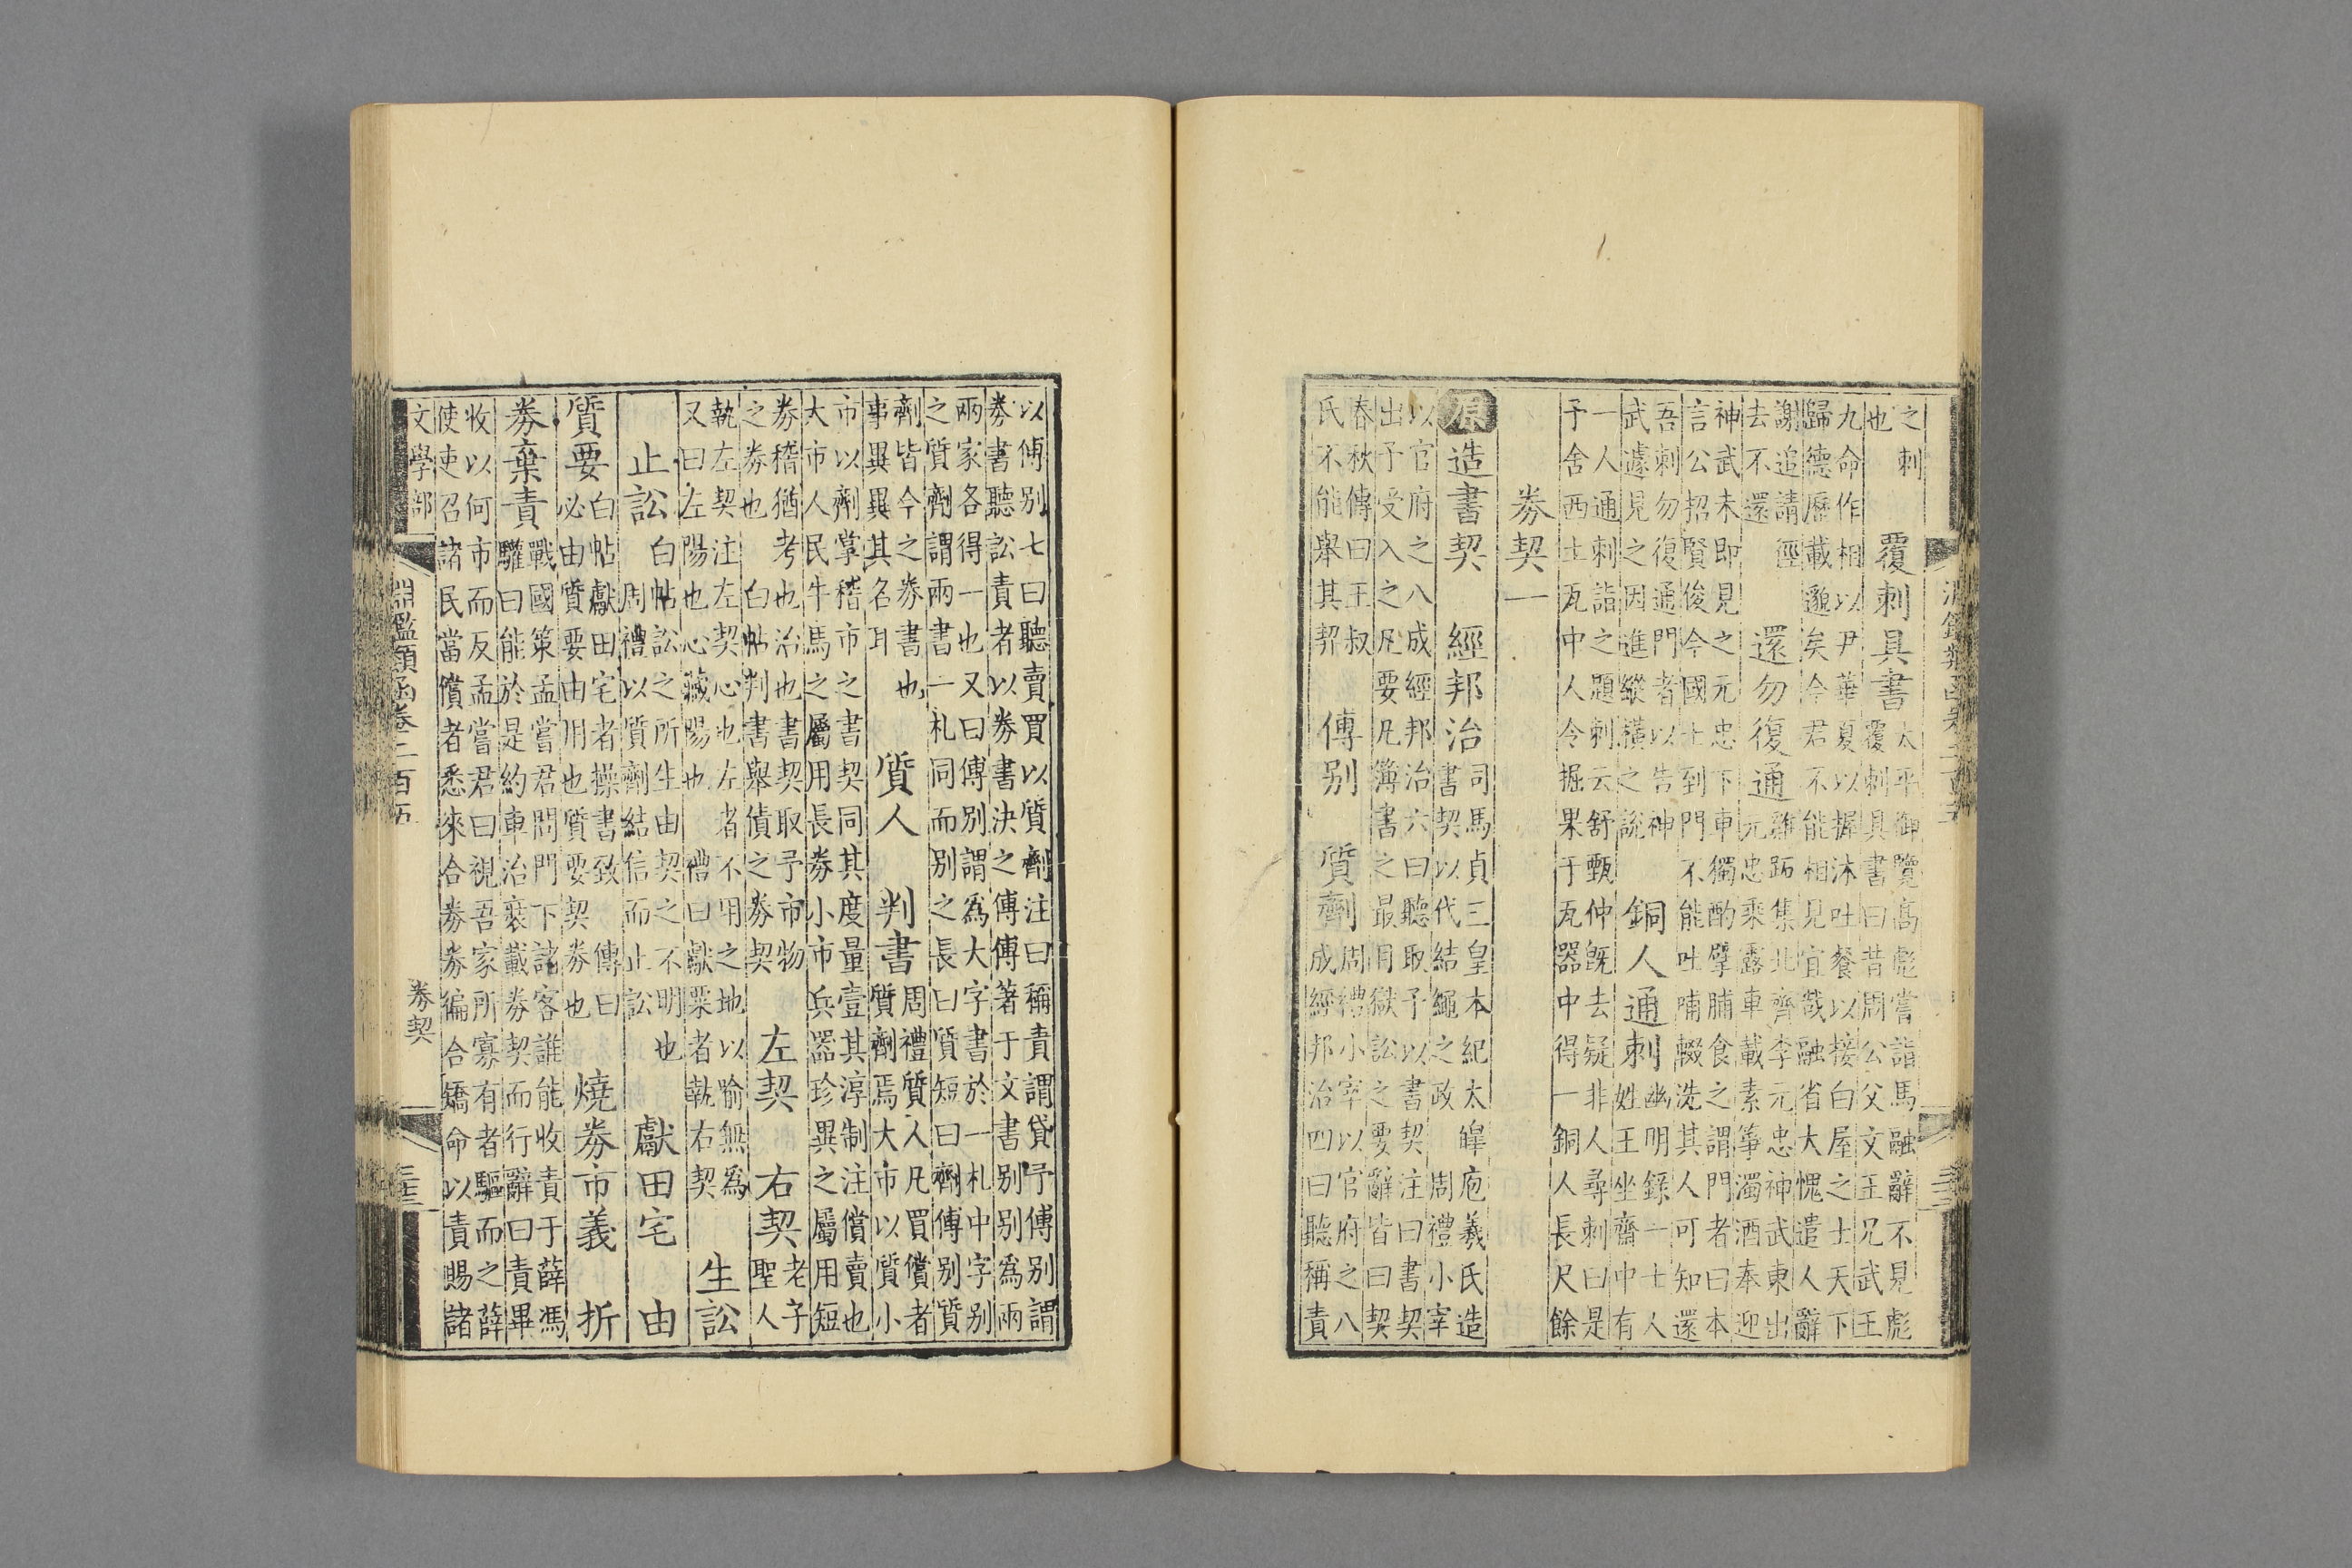 之刺
也
覆刺具書
太平御覽高彪嘗詣馬融辭不見彪
覆刺具書曰昔周公父文王兄武王
九命作相以尹華夏以握沐吐餐以接白屋之士天下
歸德歷載邈矣今君不能相見宜哉融省大愧遣人辭
謝追請徑
去不還
還勿復通
雞跖集北齊李元忠神武東出
元忠乘露車載素箏濁酒奉迎
神武未即見之元忠下車獨酌擘脯食之謂門者曰本
言公招賢俊今國士到門不能吐哺輟洗其人可知還
吾刺勿復通門者以告神
武遽見之因進縱橫之說
銅人通刺
幽明錄一士人
姓王坐齋中有
一人通刺詣之題刺云舒甄仲既去疑非人尋刺曰是
予舍西土瓦中人令掘果于瓦器中得一銅人長尺餘
券契一
原造書契 經邦治
司馬貞三皇本紀太皞庖羲氏造
書契以代結繩之政 周禮小宰
以官府之八成經邦治六曰聽取予以書契注曰書契
出予受入之凡要凡簿書之最目獄訟之要辭皆曰契
春秋傳曰王叔
氏不能舉其契
傅别 質劑
周禮小宰以官府之八
成經邦治四曰聽稱責
以傅别七曰聽賣買以質劑注曰稱責謂貸予傅别謂
券書聽訟責者以券書決之傅傅著于文書别别爲兩
兩家各得一也又曰傅别謂爲大字書於一札中字别
之質劑謂兩書一札同而别之長曰質短曰劑傅别質
劑皆今之券書也
事異異其名耳
質人 判書
周禮質人凡買儥者
質劑焉大市以質小
市以劑掌稽市之書契同其度量壹其淳制注儥賣也
大市人民牛馬之屬用長券小市兵器珍異之屬用短
券稽猶考也治也書契取予市物
之券也 白帖判書舉債之券契
左契 右契
老子
聖人
執左契注左契心也左者不用之地以喻無爲
又曰左陽也心藏陽也 禮曰獻粟者執右契
生訟
止訟
白帖訟之所生由契之不明也
周禮以質劑結信而止訟
獻田宅 由
質要
白帖獻田宅者操書致 傳曰
必由質要由用也質要契券也
燒券市義 折
券棄責
戰國策孟嘗君問門下諸客誰能收責于薛馮
驩曰能於是約車治裝載券契而行辭曰責畢
收以何市而反孟嘗君曰視吾家所寡有者驅而之薛
使吏召諸民當償者悉來合券券徧合矯命以責賜諸
文學部
淵鑑類函卷二百五
券契